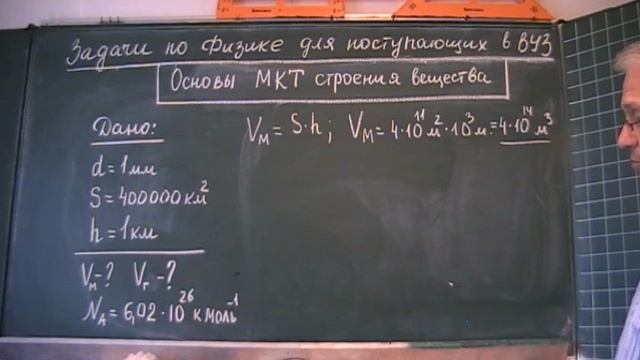 Задачи по физике для поступающих в ВУЗ
Основы МКТ строения вещества
Дано:
d = 1 мм
S = 400000 км²
h = 1 км
Vм - ? Vг - ?
N_A = 6,02 · 10²⁶ кмоль⁻¹
Vм = S·h ; Vм = 4·10¹¹ м² · 10³ м = 4·10¹⁴ м³